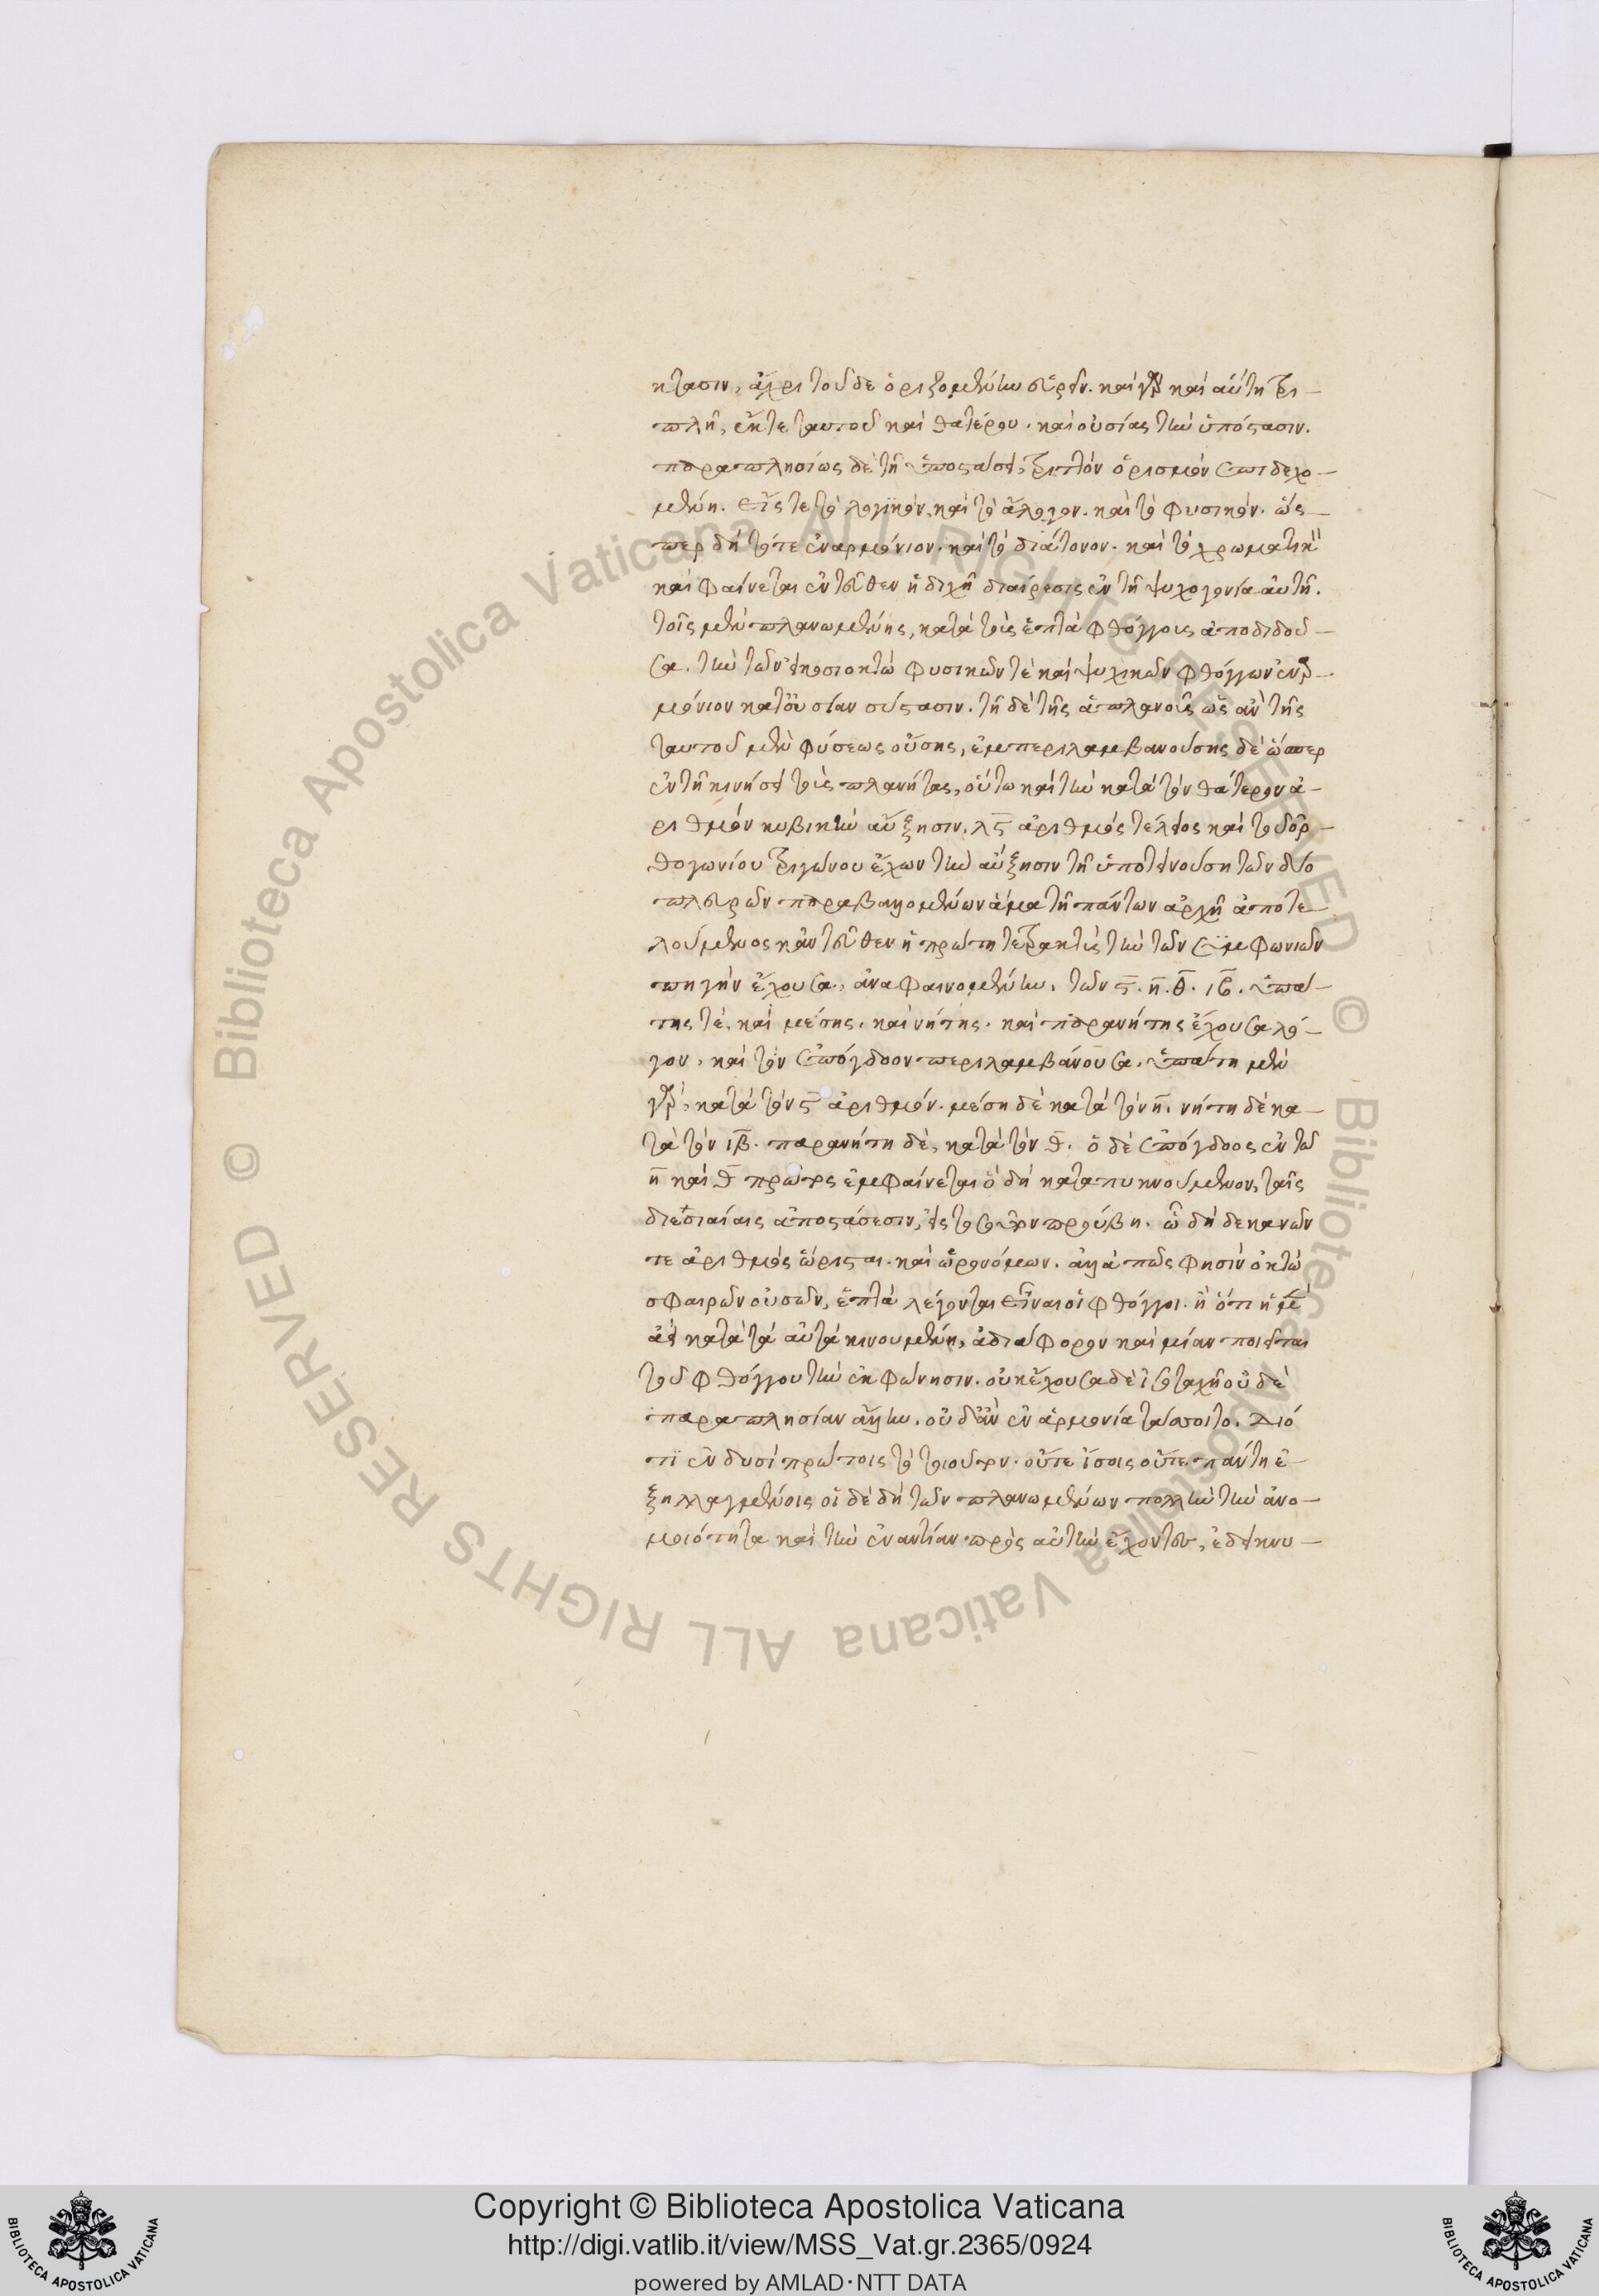 κτασιν, ἄχρι τοῦδε ὁριζομένην εὑρεῖν. καὶ γὰρ καὶ αὕτη τρι–
πλῆ, ἔκ τε ταυτοῦ καὶ θατέρου. καὶ οὐσίας τὴν ὑπόστασιν.
παραπλησίως δὲ τῇ ὑποστάσει, τριπλὸν ὁρισμὸν ἐπιδεχο–
μένη. εἴς τε τὸ λογικὸν, καὶ τὸ ἄλογον. καὶ τὸ φυσικόν. ὥς–
περ δὴ τό τε ἐναρμόνιον. καὶ τὸ διάτονον. καὶ τὸ χρωματικ
καὶ φαίνεται ἐντεῦθεν ἡ διχῆ διαίρεσις ἐν τῇ ψυχογονία αὐτῆ.
τοῖς μὲν πλανωμένης, κατὰ τοὺς ἑπτὰ φθόγγους ἀποδιδοῦ–
σα. τὴν τῶν εἰκοσιοκτὼ φυσικῶν τὲ καὶ ψυχικῶν φθόγγων ἐναρ–
μόνιον κατ' οὐσίαν σύστασιν. τῇ δὲ τῆς ἀπλανοῦς ὡς ἂν τῆς
ταυτοῦ μὲν φύσεως οὔσης, ἐμπεριλαμβανούσης δὲ ὥσπερ
ἐν τῇ κινήσει τοὺς πλανήτας, οὕτω καὶ τὴν κατὰ τὸν θάτερον ἀ–
ριθμὸν κυβικὴν αὔξησιν. λς ἀριθμὸς τέλειος καὶ τοῦ ὀρ–
θογωνίου τριγώνου ἔχων τὴν αὔξησιν τῇ ὑποτεινούσῃ τῶν δύο
πλευρῶν παραβαλλομένων ἅμα τῇ πάντων ἀρχῇ ἀποτε
λούμενος κἀντεῦθεν ἡ πρώτη τετρακτὺς τὴν τῶν συμφωνιῶν
πηγὴν ἔχουσα, ἀναφαινομένην. τῶν ς. η. θ. ιβ. ὑπά–
της τὲ, καὶ μέσης. καὶ νήτης. καὶ παρανήτης ἔχουσα λό–
γον, καὶ τὸν ἐπόγδοον περιλαμβάνουσα. ὑπάτη μὲν
γὰρ, κατὰ τὸν ς ἀριθμόν. μέση δὲ κατὰ τὸν η. νήτη δὲ κα–
τὰ τὸν ιβ. παρανήτη δὲ, κατὰ τὸν θ. ὁ δὲ ἐπόγδοος ἐν τῶ
η καὶ θ πρώτοις ἐμφαίνεται ὃ δὴ καταπυκνούμενον, ταῖς
διεσιαίαις ἀποστάσεσιν, εἰς τοσοῦτον προύβη. ᾧ δὴ δεκανῶν
τε ἀριθμὸς ὥρισται. καὶ ὡρονόμων. ἀλλὰ πῶς φησὶν ὀκτὼ
σφαιρῶν οὐσῶν, ἑπτὰ λέγονται εἶναι οἱ φθόγγοι. ἢ ὅτι ἡ μὲν
ἀεὶ κατὰ τὰ αὐτὰ κινουμένη, ἀδιάφορον καὶ μίαν ποιεῖται
τοῦ φθόγγου τὴν ἐκφώνησιν. οὐκ ἔχουσα δὲ ἰσοταχῆ οὐδὲ
παραπλησίαν ἄλλην. οὐδ' ἂν ἐν ἁρμονία τάσσοιτο. διό
τι ἐν δυσὶ πρώτοις τὸ τοιοῦτον. οὔτε ἴσοις οὔτε πάντη ἐ–
ξηλλαγμένοις οἱ δὲ δὴ τῶν πλανωμένων πολλὴν τὴν ἀνο–
μοιότητα καὶ τὴν ἐναντίαν πρὸς αὐτὴν ἔχοντες, ἐδείκνυ–
Copyright © Biblioteca Apostolica Vaticana
http://digi.vatlib.it/view/MSS_Vat.gr.2365/0924
powered by AMLAD·NTT DATA
BIBLIOTECA APOSTOLICA VATICANA
BIBLIOTECA APOSTOLICA VATICANA
© Biblioteca Apostolica Vaticana ALL RIGHTS RESERVED © Biblioteca Apostolica Vaticana ALL RIGHTS RESERVED